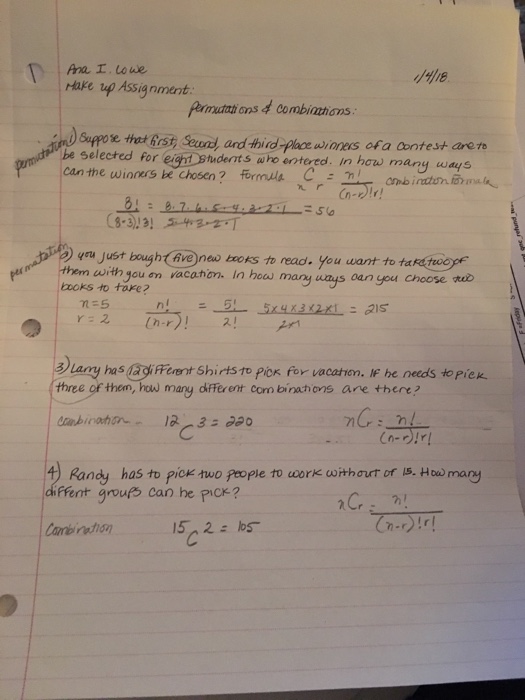 Ana I. Lowe
1/4/18
Make up Assignment:
Permutations & Combinations:
permutation 1) Suppose that first, Second, and third-place winners of a contest are to
be selected for eight students who entered. In how many ways
can the winners be chosen? Formula nCr = n!/(n-r)!r! combination formula
8!/(8-3)!3! = 8.7.6.5.4.3.2.1/5.4.3.2.1 = 56
permutation 2) you just bought (five) new books to read. You want to take two of
them with you on vacation. In how many ways can you choose two
books to take?
n=5 n!/(n-r)! = 5!/2! 5x4x3x2x1/2x1 = 215
r = 2
3) Larry has 12 different shirts to pick for vacation. If he needs to pick
three of them, how many different combinations are there?
combination - 12 C 3 = 220 nCr = n!/(n-r)!r!
4) Randy has to pick two people to work with out of 15. How many
diffent groups can he pick?
nCr = n!/(n-r)!r!
Combination 15 C 2 = 105